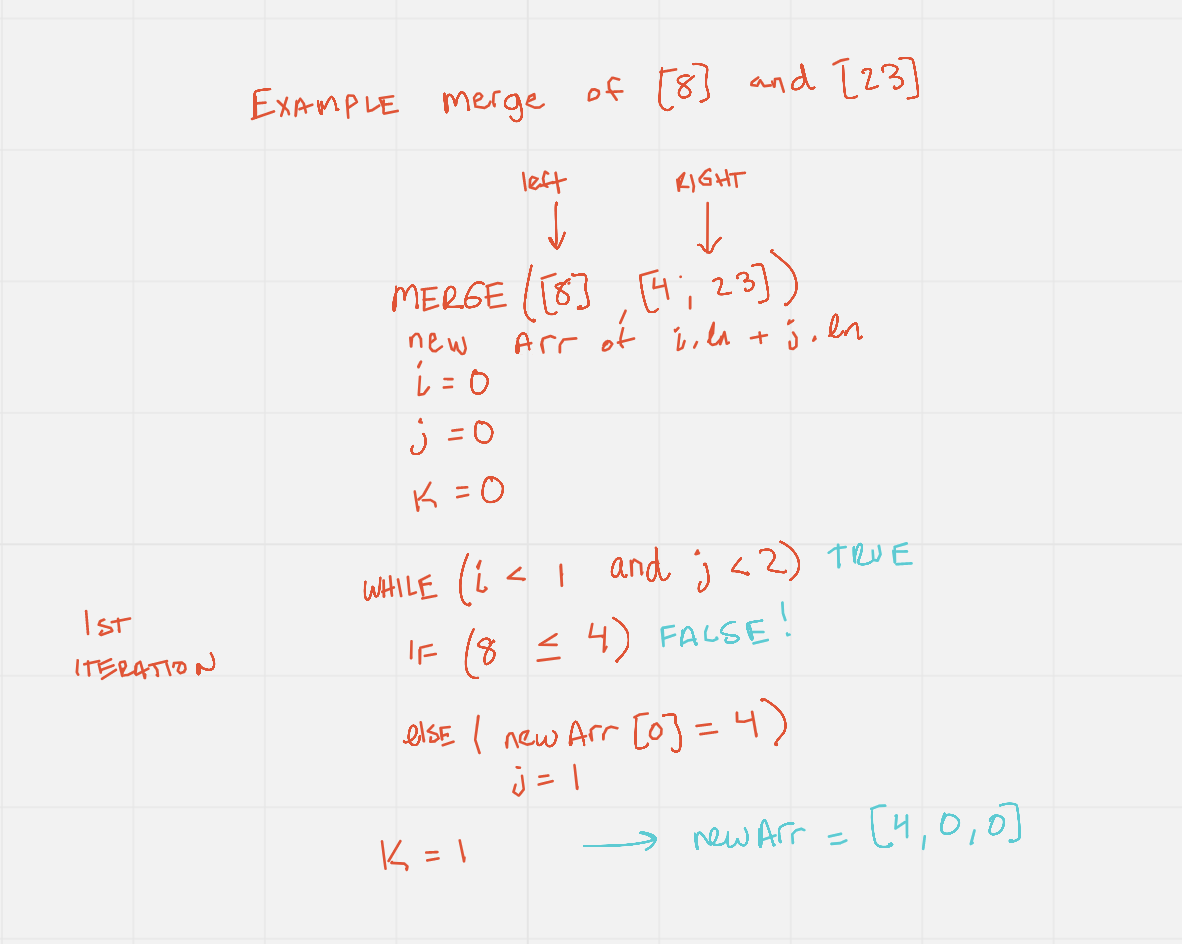 EXAMPLE merge of [8] and [23]
left RIGHT
MERGE ([8] , [4 , 23])
new Arr of i.ln + j.ln
i = 0
j = 0
K = 0
WHILE (i < 1 and j < 2) TRUE
1ST
ITERATION
IF (8 ≤ 4) FALSE!
else ( newArr [0] = 4)
j = 1
K = 1 → newArr = [4, 0, 0]